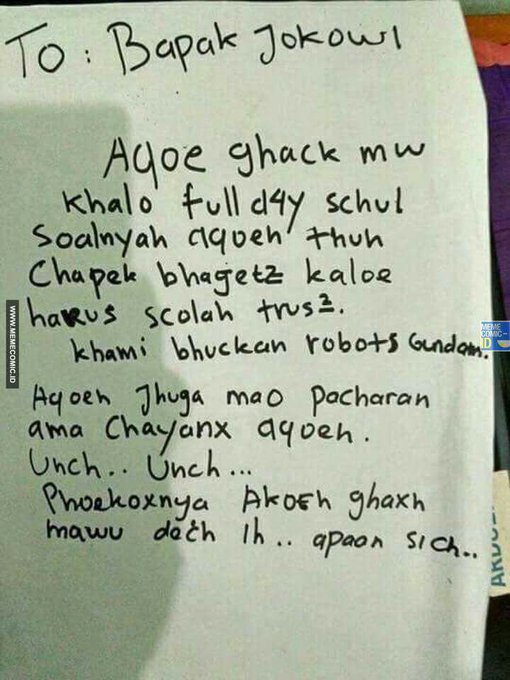 To : Bapak Jokowi
Aqoe ghack mw
khalo full d4y schul
Soalnyah aqoeh thuh
Chapek bhagetz kaloe
harus scolah trus2.
khami bhuckan robots Gundam.
Aqoeh Jhuga mao pacharan
ama Chayanx aqoeh.
Unch.. Unch...
Phoekoxnya Akoeh ghaxh
mawu dech ih.. apaan sich..
WWW.MEMECOMIC.ID
MEME
COMIC
ID